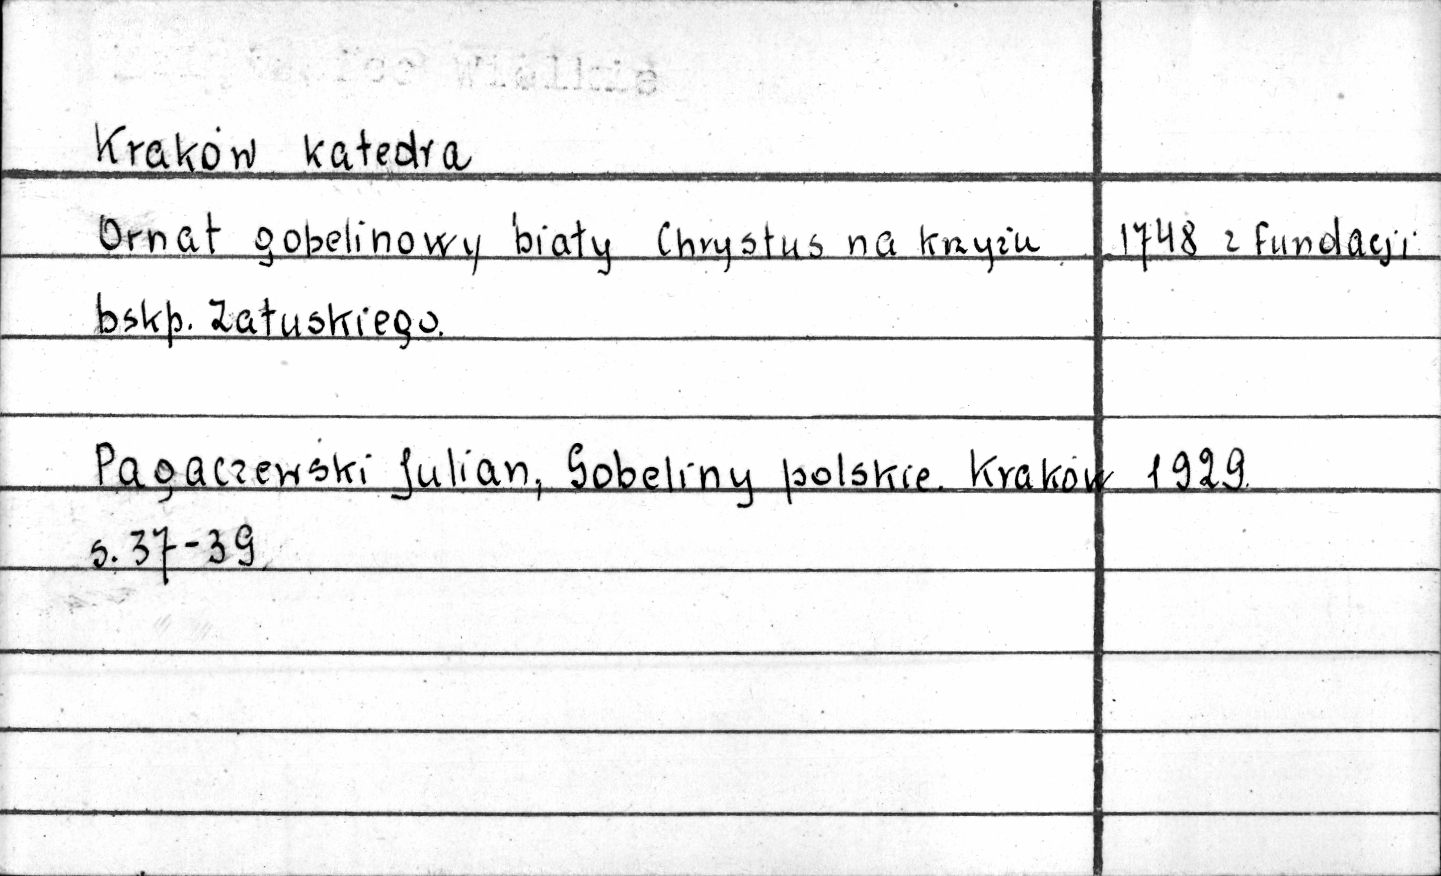 Kraków katedra
Ornat gobelinowy biały Chrystus na krzyżu 1748 z fundacji
bskp. Załuskiego.
Pagaczewski Julian, Gobeliny polskie. Kraków 1929.
s. 37-39.